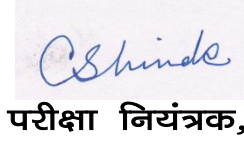 CShinde
परीक्षा नियंत्रक,